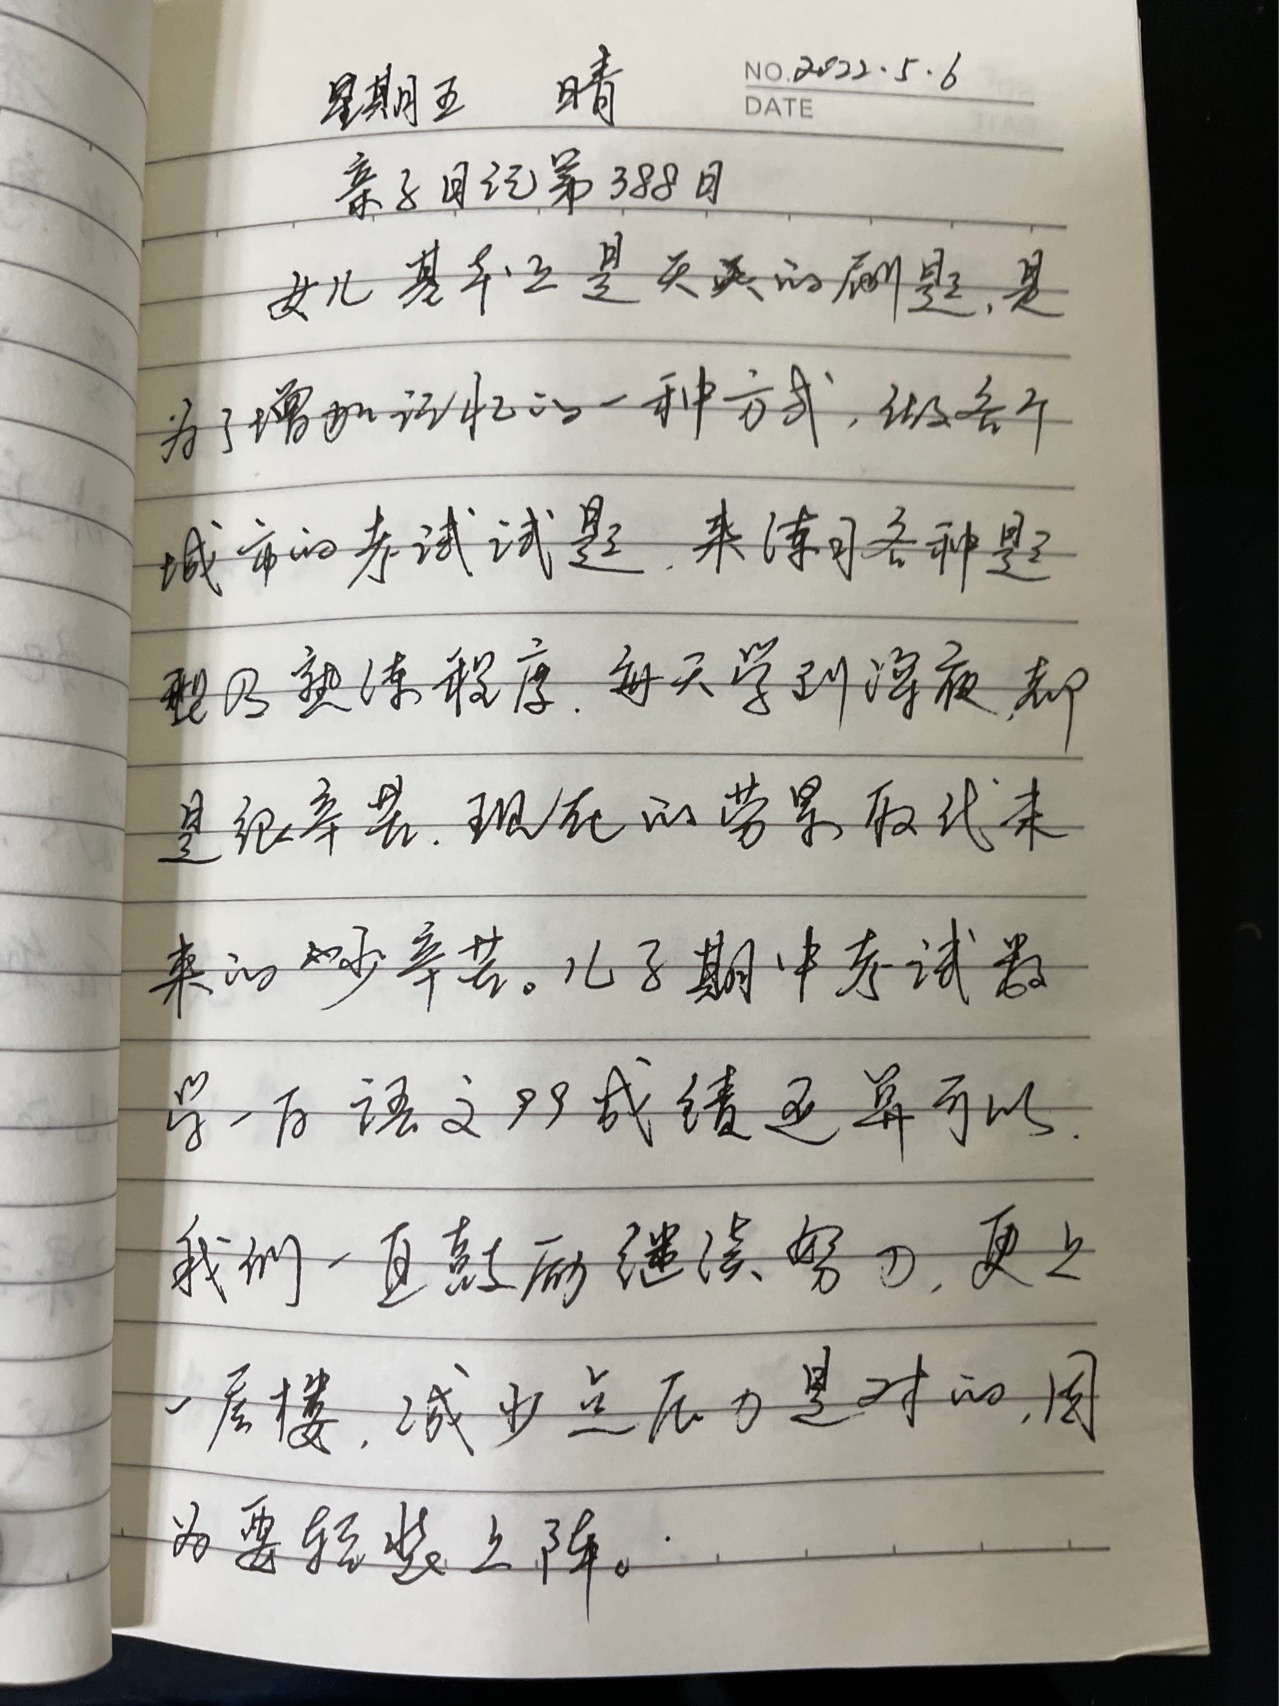 NO. 2022.5.6
星期五 晴
DATE
亲子日记第388日
女儿基本上是天天的刷题,是
为了增加记忆的一种方式,做各个
城市的考试试题.来练习各种题
型及熟练程度.每天学到深夜,都
是很辛苦.现在的劳累取代未
来的 辛苦。儿子期中考试数
学一百语文99成绩还算可以.
我们一直鼓励继续努力,更上
一层楼,减少点压力是对的,因
为要轻装上阵。